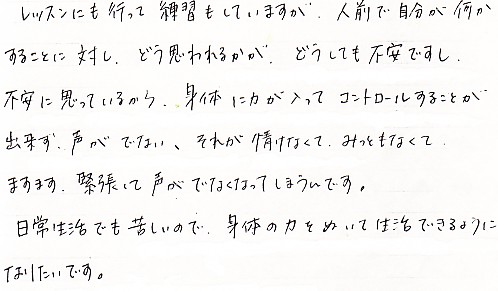 レッスンにも行って練習もしていますが、人前で自分が何か
することに対し、どう思われるかが、どうしても不安ですし、
不安に思っているから、身体に力が入ってコントロールすることが
出来ず、声がでない、それが情けなくて、みっともなくて
ますます、緊張して声がでなくなってしまうんです。
日常生活でも苦しいので、身体の力をぬいて生活できるように
なりたいです。